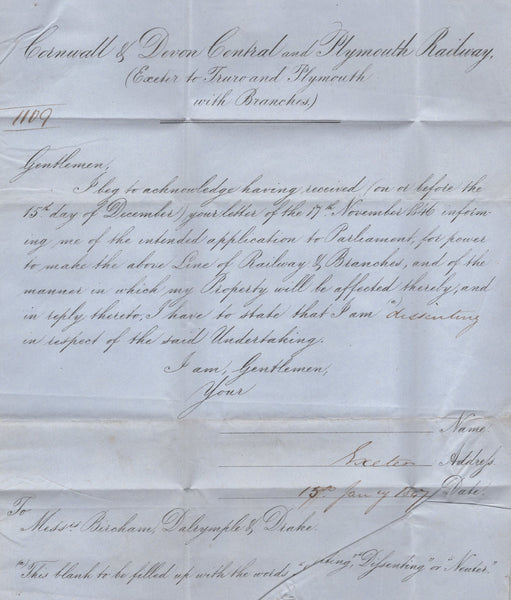 Cornwall & Devon Central and Plymouth Railway,
(Exeter to Truro and Plymouth
with Branches)
1109
Gentlemen,
I beg to acknowledge having received (on or before the
15th day of December) your letter of the 17th November 1846 inform-
ing me of the intended application to Parliament, for power
to make the above Line of Railway & Branches, and of the
manner in which my Property will be affected thereby, and
in reply thereto, I have to state that I am (a) dissenting
in respect of the said Undertaking.
I am, Gentlemen,
Your
Name
Exeter Address.
15th Jany 1847 Date.
To
Messrs Bircham, Dalrymple & Drake.
(a) This blank to be filled up with the words "Dissenting" or "Neuter."